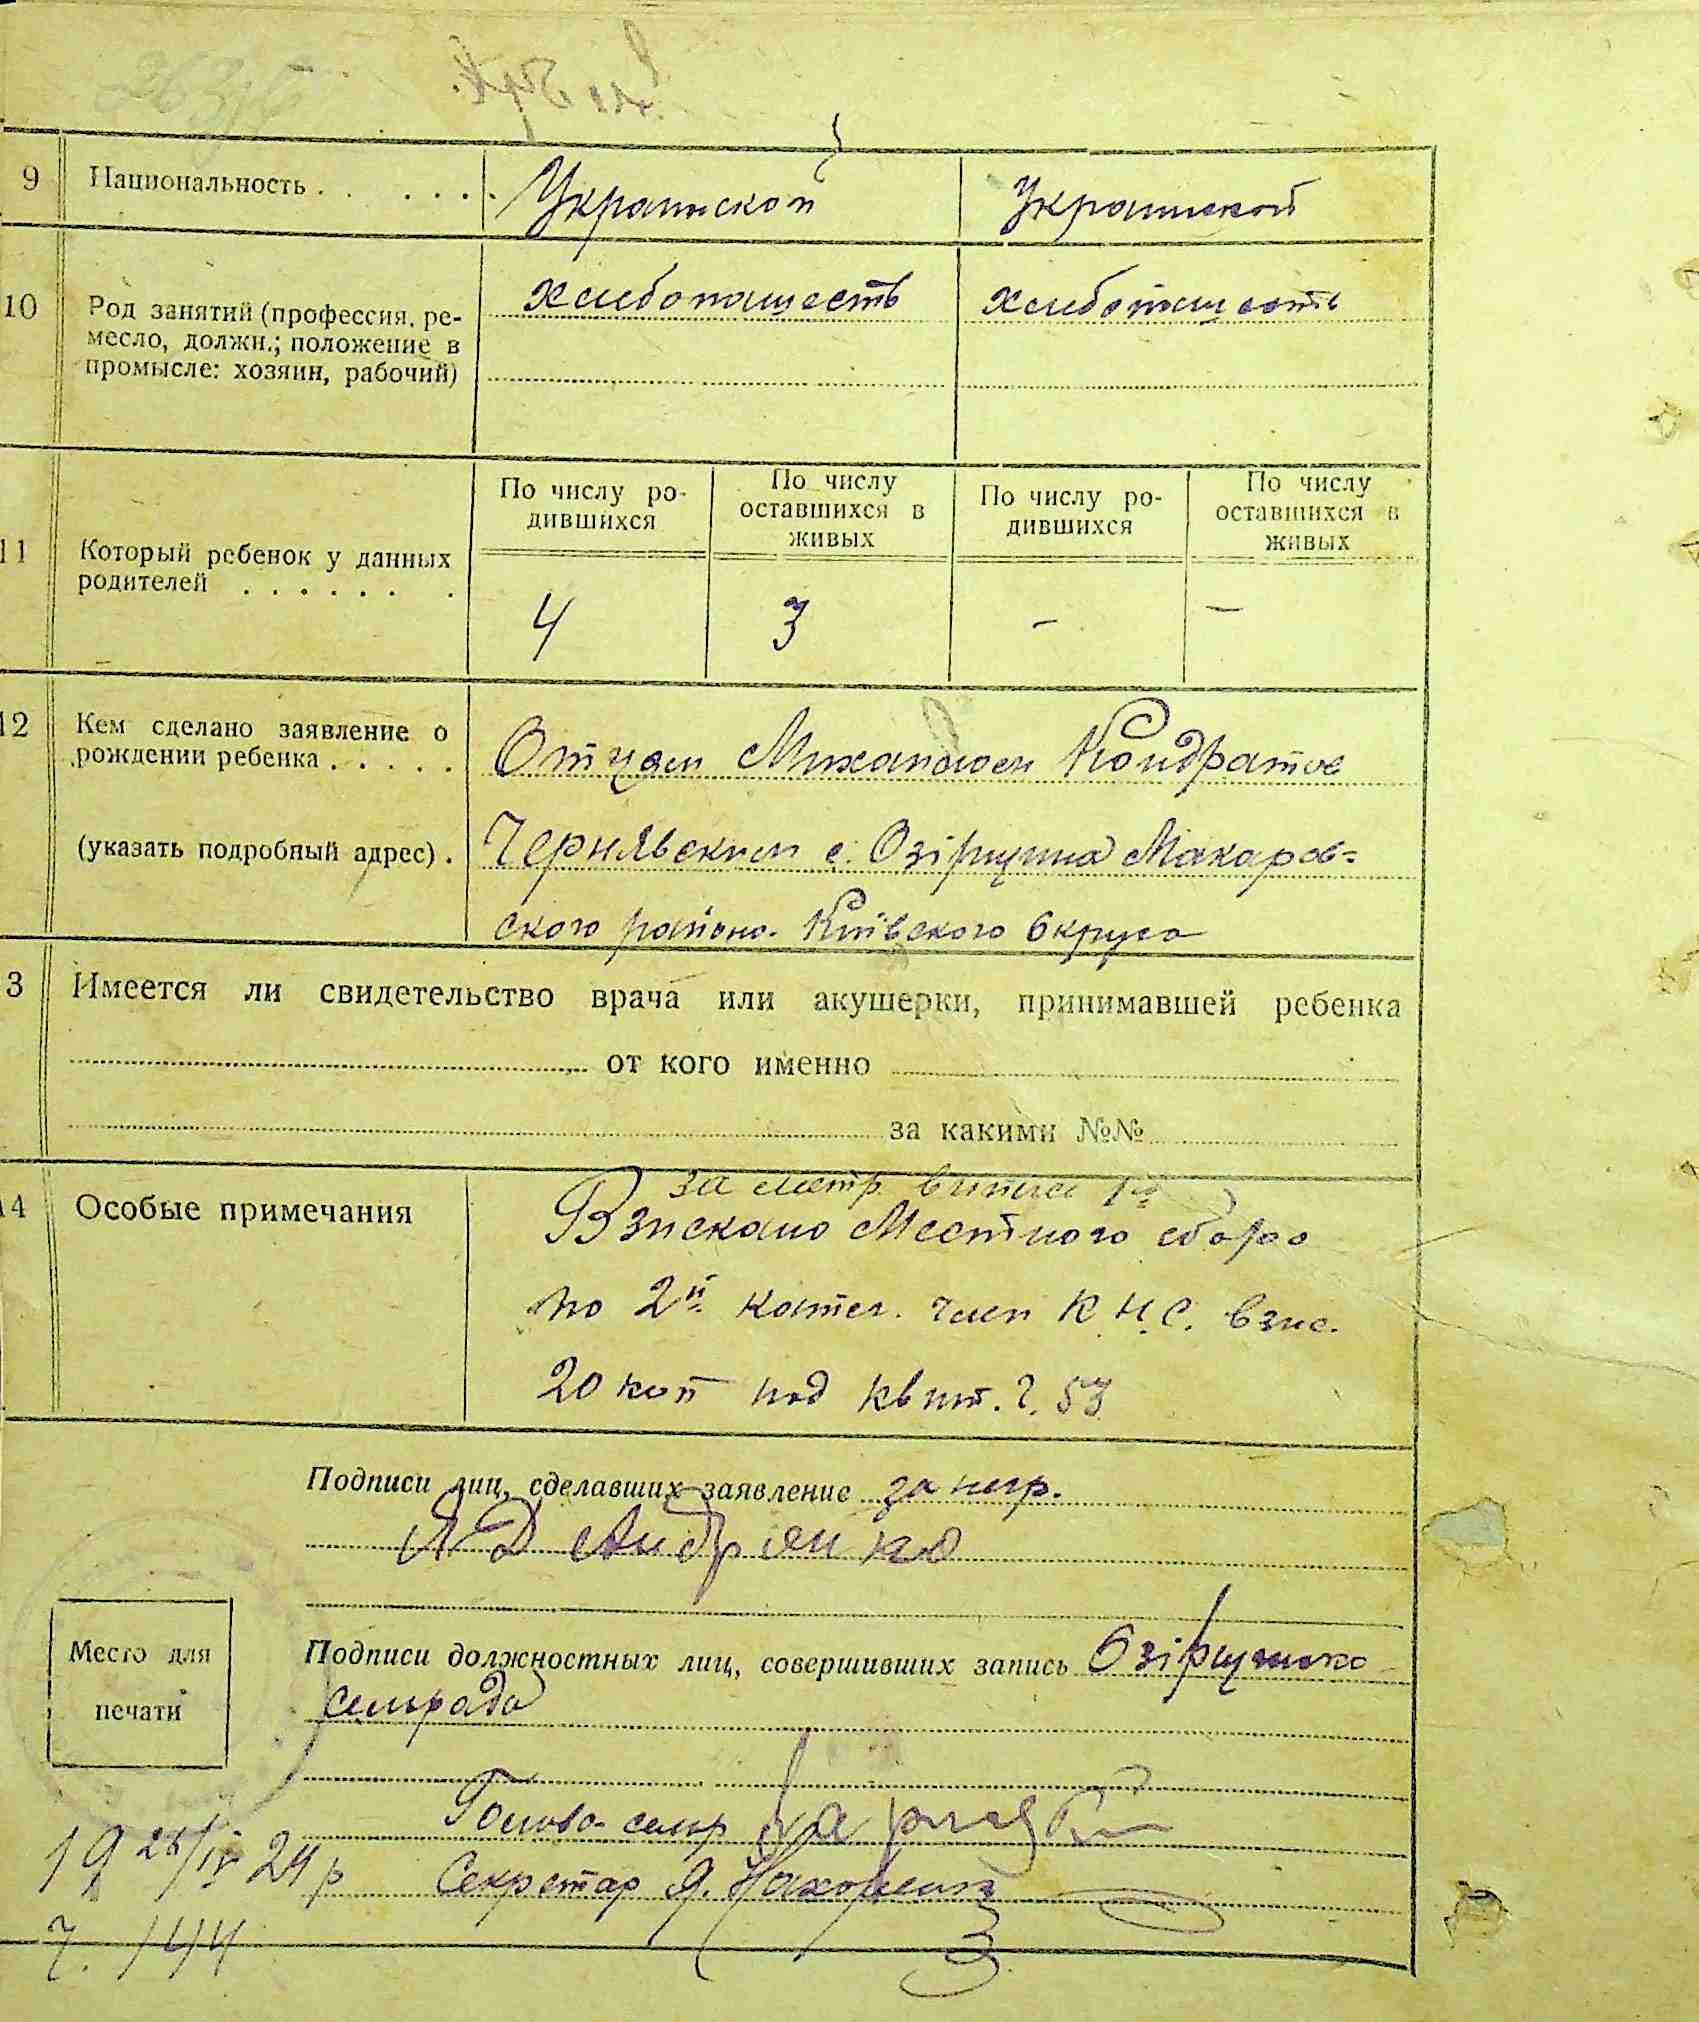 9 Национальность . . . . . . . Украинской Украинской
10 Род занятий (профессия, ре-
месло, должн.; положение в
промысле: хозяин, рабочий)
хлибопашеств хлибопашеств
11 Который ребенок у данных
родителей . . . . . . .
По числу ро-
дившихся
По числу
оставшихся в
живых
По числу ро-
дившихся
По числу
оставшихся в
живых
4 3 - -
12 Кем сделано заявление о
рождении ребенка . . . . .
(указать подробный адрес) .
Отцем Михайлом Кондратов
Чернявским с. Озірщина Макаров=
ского района Київского Округа
3 Имеется ли свидетельство врача или акушерки, принимавшей ребенка
от кого именно
за какими №№
14 Особые примечания
за метр. витяг
Взискано Местного сбора
по 2й катег. член К.Н.С. взис.
20 коп под квит. Ч. 53
Подписи лиц, сделавших заявление за негр.
Андриенко
Подписи должностных лиц, совершивших запись Озірщинска
сельрада
Место для
печати
Голова сельр
Секретар Я.
19 25/IV 24 р
Ч. 144